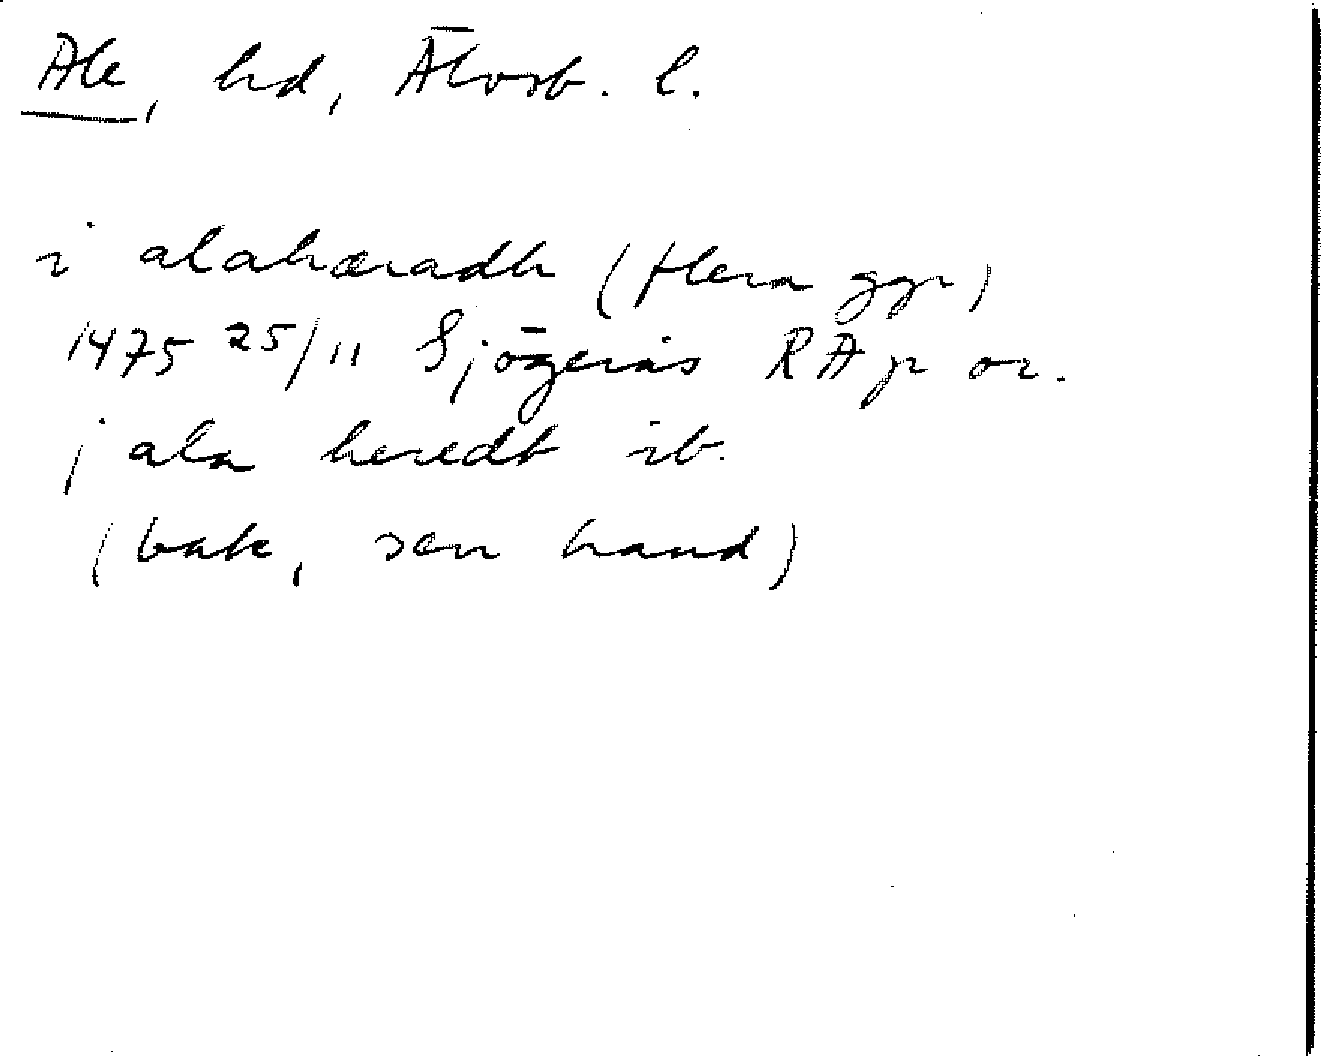 Ale, hd, Älvsb. l.
i alahæradh (flera ggr)
1475 25/11 Sjögerås RAp or.
j ala heredt ib.
(bak, sen hand)